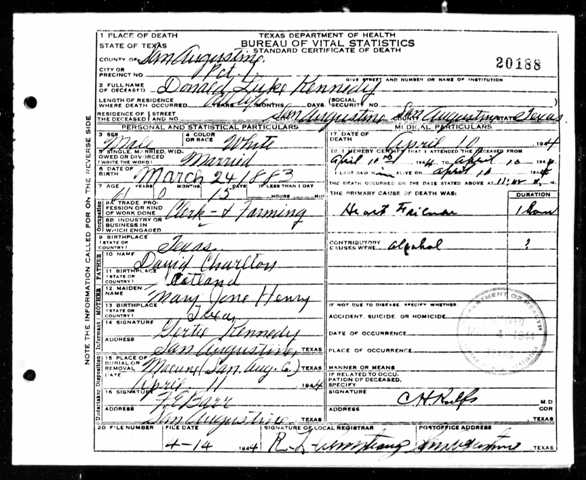 1 PLACE OF DEATH
STATE OF TEXAS
TEXAS DEPARTMENT OF HEALTH
BUREAU OF VITAL STATISTICS
STANDARD CERTIFICATE OF DEATH
COUNTY OF San Augustine
20188
CITY OR PRECINCT NO. Pct 1
GIVE STREET AND NUMBER OR NAME OF INSTITUTION
2 FULL NAME OF DECEASED Donald Luke Kennedy
LENGTH OF RESIDENCE WHERE DEATH OCCURRED YEARS MONTHS DAYS (SOCIAL
RESIDENCE OF THE DECEASED STREET AND NO. San Augustine San Augustine STATE Texas
PERSONAL AND STATISTICAL PARTICULARS
3 SEX Male
4 COLOR OR RACE White
5 SINGLE, MARRIED, WIDOWED OR DIVORCED (WRITE THE WORD) Married
6 DATE OF BIRTH March 24 1883
7 AGE 61 0 15 IF LESS THAN 1 DAY HOURS MINUTES
8A TRADE, PROFESSION OR KIND OF WORK DONE Clerk & Farming
8B INDUSTRY OR BUSINESS IN WHICH ENGAGED
9 BIRTHPLACE (STATE OR COUNTRY) Texas
10 NAME David Charlton
11 BIRTHPLACE (STATE OR COUNTRY)
12 MAIDEN NAME Mary Jane Henry
13 BIRTHPLACE (STATE OR COUNTRY) Texas
14 SIGNATURE Gertie Kennedy
ADDRESS San Augustine TEXAS
15 PLACE OF BURIAL OR REMOVAL (San. Aug. Co.) TEXAS
DATE April 11 1944
16 SIGNATURE
ADDRESS San Augustine TEXAS
MEDICAL PARTICULARS
17 DATE OF DEATH April 10 1944
18 I HEREBY CERTIFY THAT I ATTENDED THE DECEASED FROM
April 10th 1944 TO April 10 1944
I LAST SAW ALIVE ON April 10 1944
THE DEATH OCCURRED ON THE DATE STATED ABOVE AT M.
THE PRIMARY CAUSE OF DEATH WAS: DURATION
Heart Failure 1 hour
CONTRIBUTORY CAUSES WERE alcohol ?
IF NOT DUE TO DISEASE, SPECIFY WHETHER:
ACCIDENT, SUICIDE OR HOMICIDE
DATE OF OCCURRENCE
PLACE OF OCCURRENCE
MANNER OR MEANS
IF RELATED TO OCCUPATION OF DECEASED, SPECIFY
SIGNATURE M.D.
ADDRESS COR TEXAS
20 FILE NUMBER FILE DATE SIGNATURE OF LOCAL REGISTRAR POSTOFFICE ADDRESS
4-14 1944 San Augustine TEXAS
NOTE THE INFORMATION CALLED FOR ON THE REVERSE SIDE